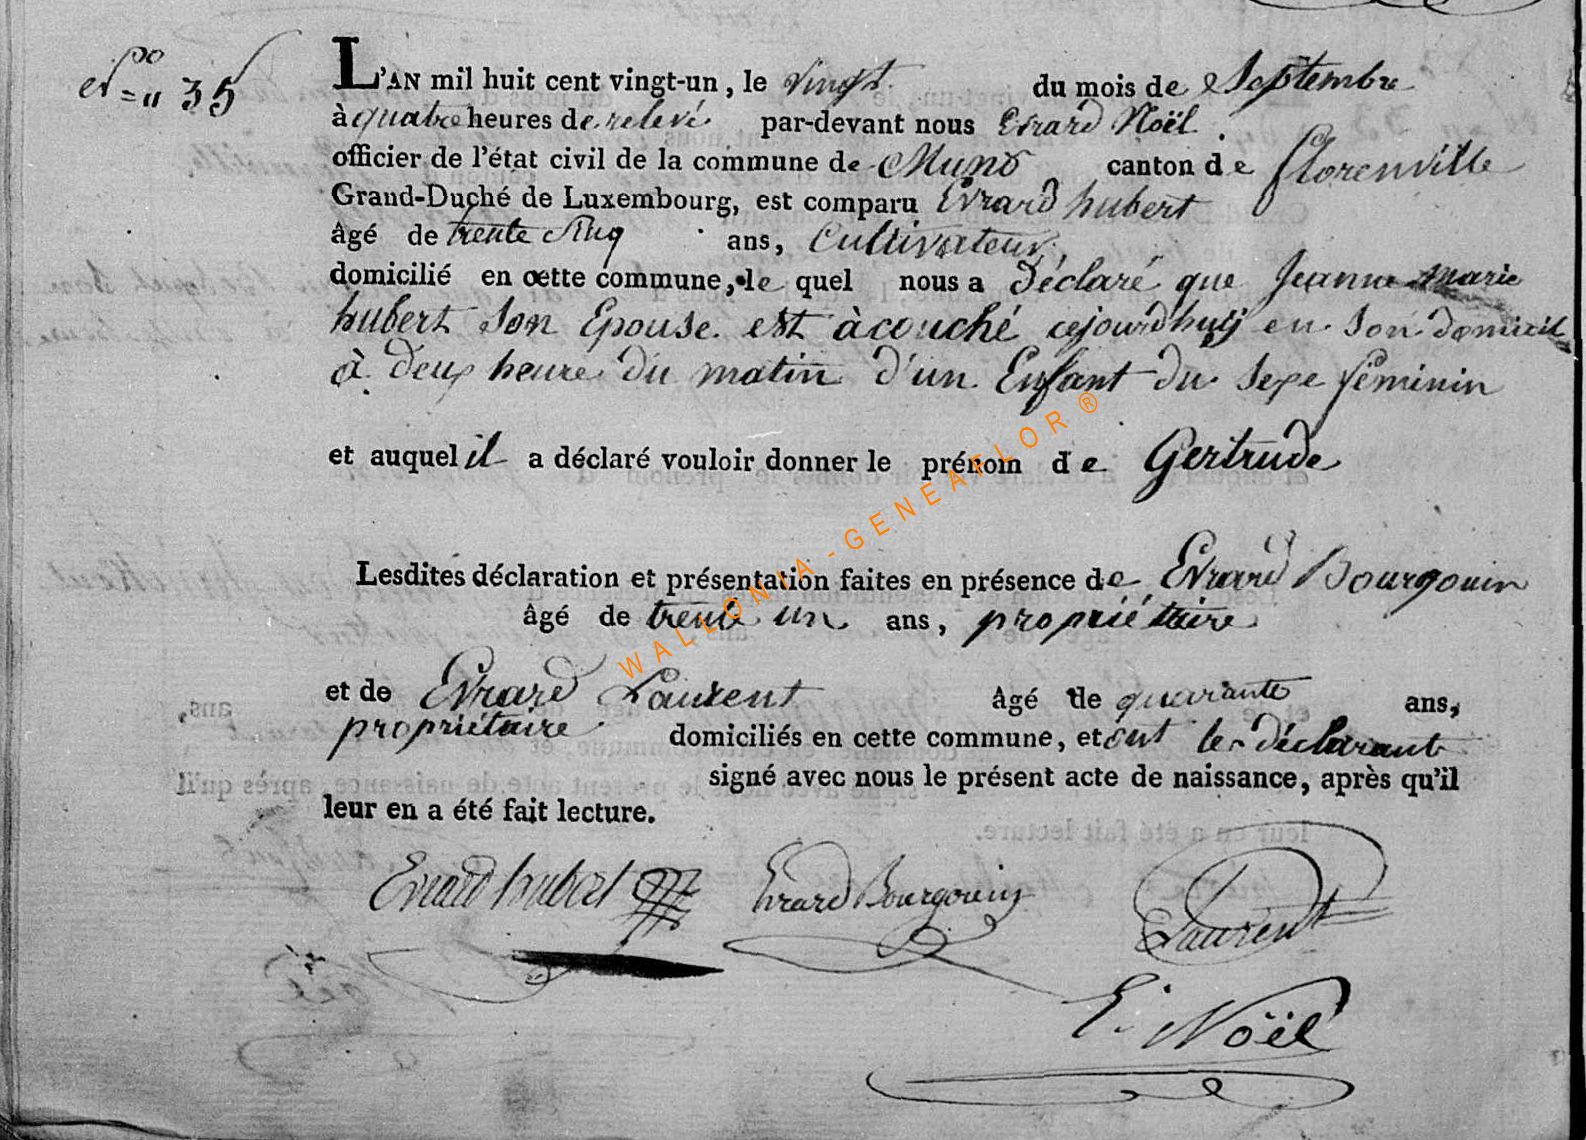 N° 35
L'AN mil huit cent vingt-un, le vingt du mois de Septembre
à quatre heures de relevé par-devant nous Evrard Noël.
officier de l'état civil de la commune de Muno canton de florenville
Grand-Duché de Luxembourg, est comparu Evrard hubert
âgé de trente Cinq ans, Cultivateur,
domicilié en cette commune, le quel nous a Déclaré que Jeanne marie
hubert Son Epouse est àcouché cejourdhuÿ en Son domicile
à Deux heure du matin d'un Enfant du Sexe féminin
et auquel il a déclaré vouloir donner le prénom de Gertrude
Lesdites déclaration et présentation faites en présence de Evrard Bourgouin
âgé de trente un ans, propriétaire
et de Evrard Laurent âgé de quarante ans,
propriétaire domiciliés en cette commune, et ont les déclarant
signé avec nous le présent acte de naissance, après qu'il
leur en a été fait lecture.
Evrard hubert Evrard Bourgouin E Laurent
E. Noël
WALLONIA-GENEAFLOR®